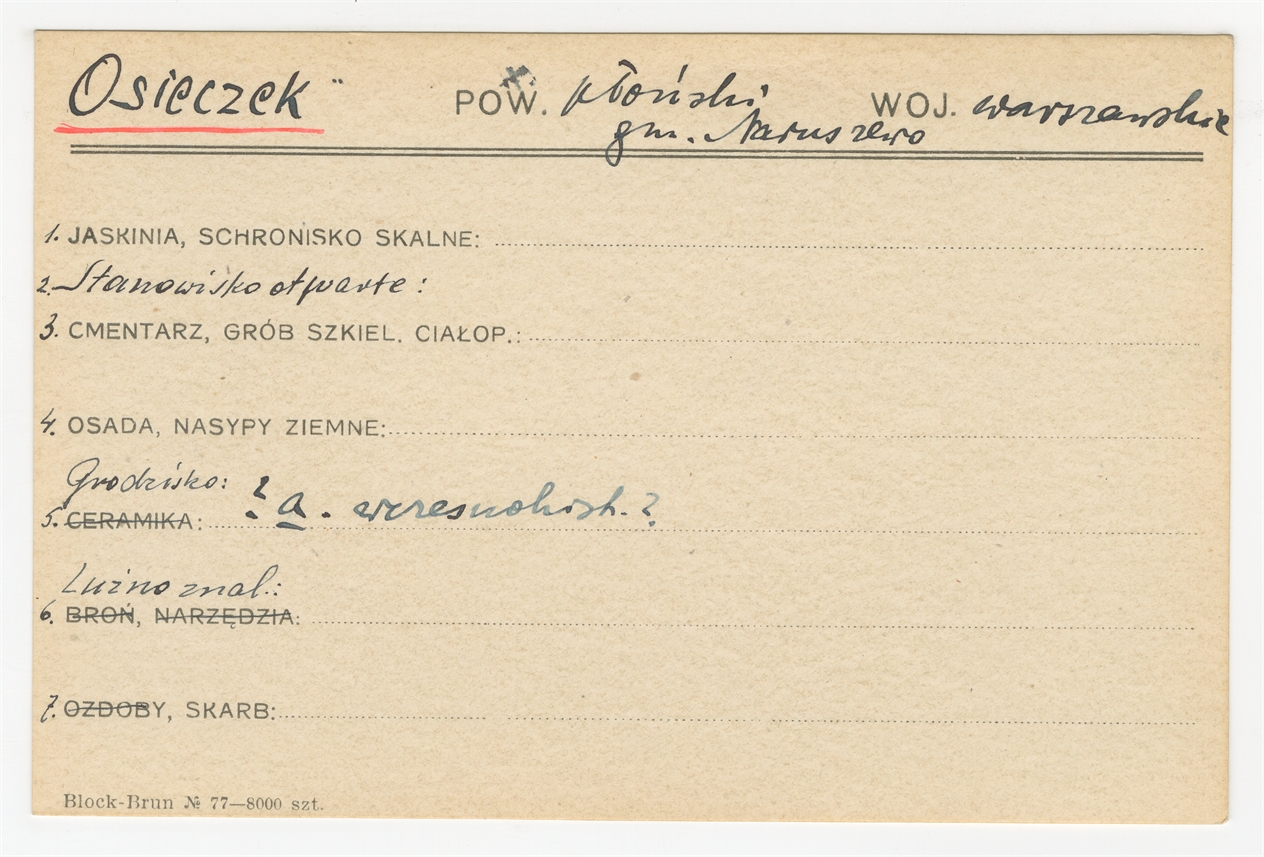 Osieczek POW. płoński WOJ. warszawskie
gm. Naruszewo
1. JASKINIA, SCHRONISKO SKALNE:
2. Stanowisko otwarte:
3. CMENTARZ, GRÓB SZKIEL. CIAŁOP.:
4. OSADA, NASYPY ZIEMNE:
Grodzisko: ? a. wczesnohist. ?
5. CERAMIKA:
Luźno znal.:
6. BROŃ, NARZĘDZIA:
7. OZDOBY, SKARB:
Block-Brun № 77—8000 szt.